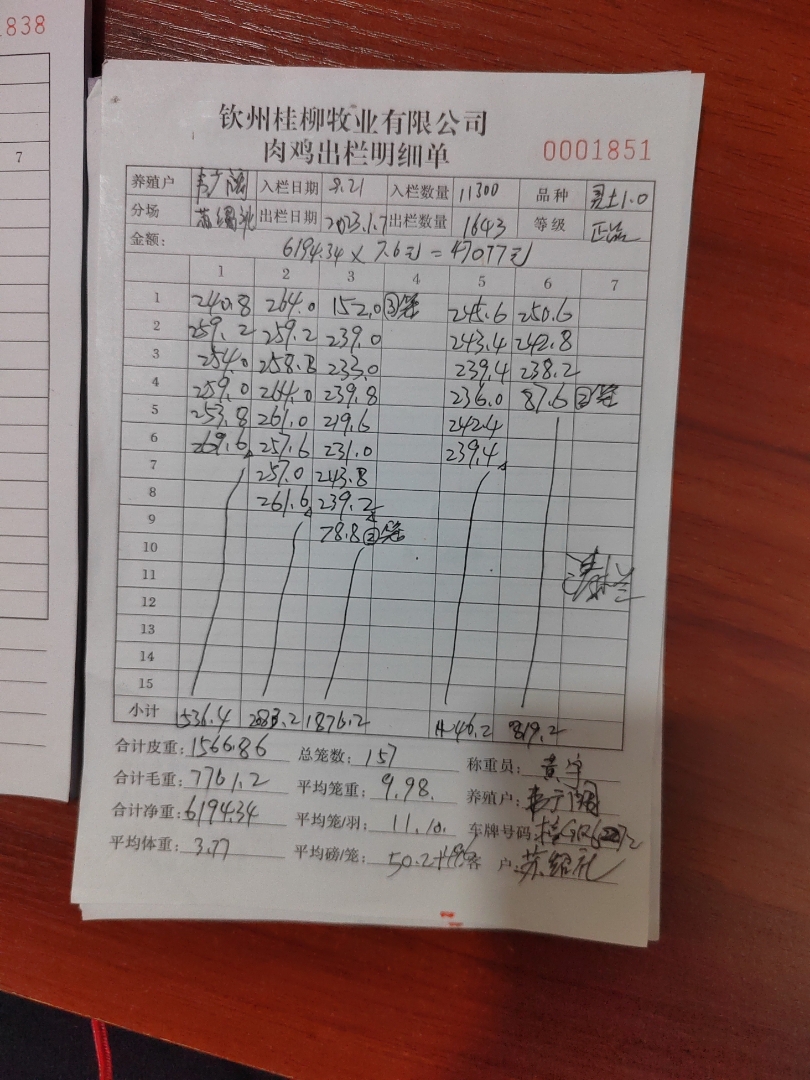 1838
7
钦州桂柳牧业有限公司
肉鸡出栏明细单 0001851
养殖户 韦广阔 入栏日期 8.21 入栏数量 11300 品种 勇士1.0
分场 出栏日期 2023.1.7 出栏数量 1643 等级 正品
金额: 6194.34 × 7.6元 = 47077元
1 2 3 4 5 6 7
1 240.8 264.0 152.0 ③笼 245.6 250.6
2 259.2 259.2 239.0 243.4 242.8
3 254.0 258.8 233.0 239.4 238.2
4 259.0 264.0 239.8 236.0 87.6 ②笼
5 253.8 261.0 219.6 242.4
6 269.6 257.6 231.0 239.4
7 257.0 243.8
8 261.6 239.2
9 78.8 ②笼
10
11 清栏
12
13
14
15
小计 1536.4 2083.2 1876.2 1446.2 819.2
合计皮重: 1566.86 总笼数: 157 称重员: 黄宇
合计毛重: 7761.2 平均笼重: 9.98. 养殖户: 韦广阔
合计净重: 6194.34 平均笼/羽: 11.10. 车牌号码:
平均体重: 3.77 平均磅/笼: 50.2 客 户: 苏绍礼